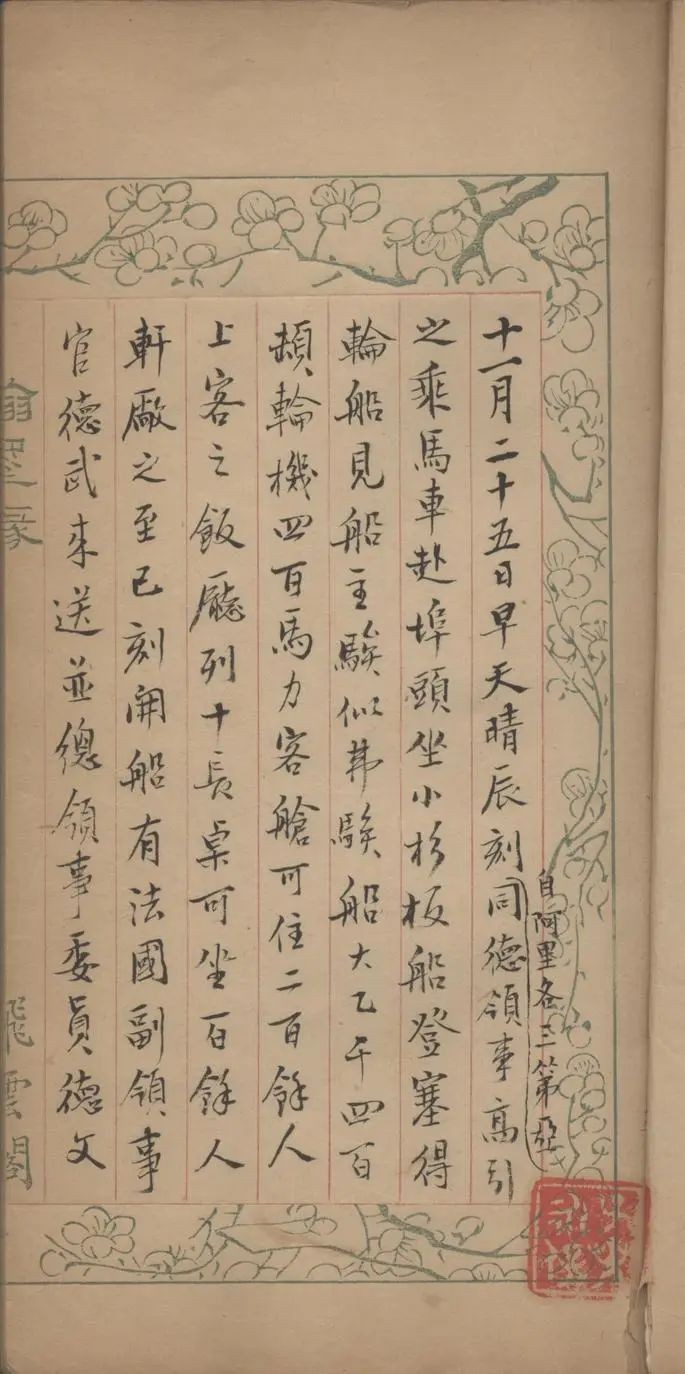 十一月二十五日早天晴辰刻同德領事高引
自阿里各三第亞
之乘馬車赴埠頭坐小杉板船登塞得
輪船見船主駿似弗駿船大乙千四百
頓輪機四百馬力客艙可住二百餘人
上客之飯廳列十長桌可坐百餘人
軒厰之至巳刻開船有法國副領事
官德武來送並總領事委員德文
飛雲閣